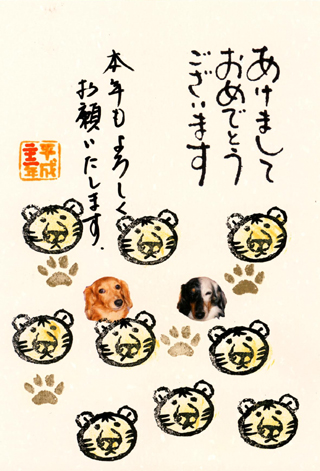 あけまして
おめでとう
ございます
本年もよろしく
お願いたします.
平成
二十二年